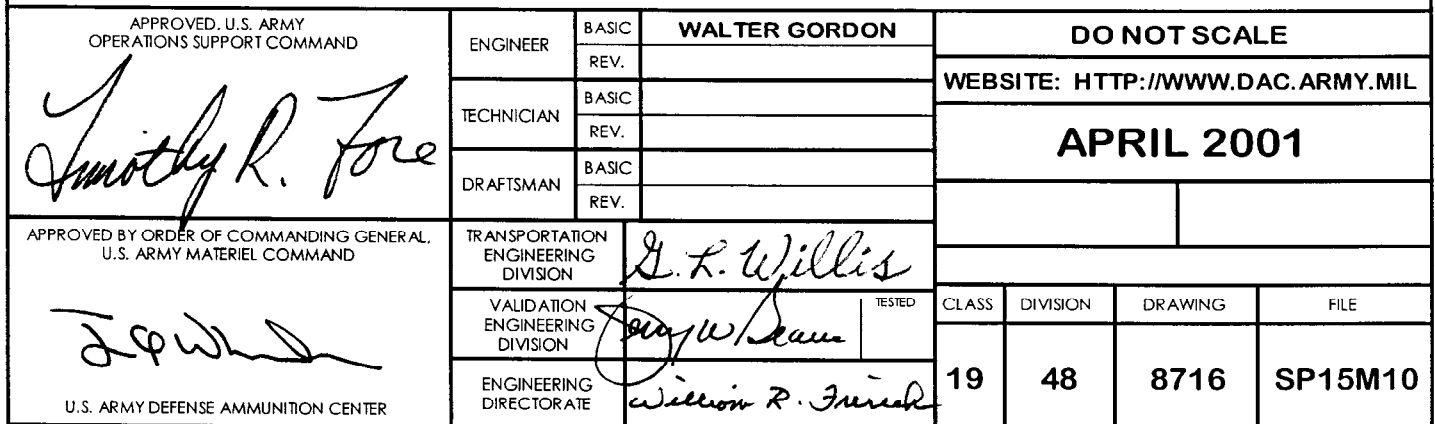 APPROVED. U.S. ARMY
OPERATIONS SUPPORT COMMAND
Timothy R. Fore
APPROVED BY ORDER OF COMMANDING GENERAL,
U.S. ARMY MATERIEL COMMAND
U.S. ARMY DEFENSE AMMUNITION CENTER
ENGINEER
BASIC
WALTER GORDON
REV.
TECHNICIAN
BASIC
REV.
DRAFTSMAN
BASIC
REV.
TRANSPORTATION
ENGINEERING
DIVISION
G. L. Willis
VALIDATION
ENGINEERING
DIVISION
W
TESTED
ENGINEERING
DIRECTORATE
William R. Frerich
DO NOT SCALE
WEBSITE: HTTP://WWW.DAC.ARMY.MIL
APRIL 2001
CLASS DIVISION DRAWING FILE
19 48 8716 SP15M10